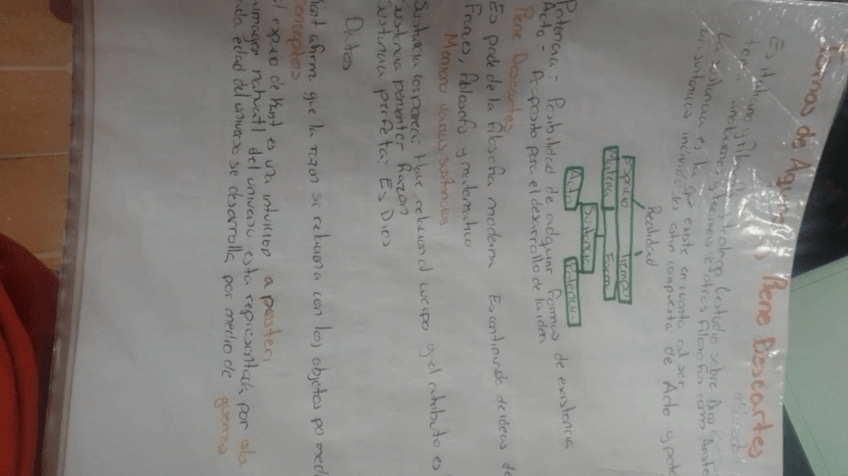 Tomas de Aquino y Rene Descartes
Es Italiano y filosofo teologo (estudio sobre Dios
tomo y otros filosofos como
La sustancia es la que existe en cuanto al ser
La sustancias individuales estan compuesta de Acto y
Realidad
Espacio Tiempo
Materia Forma
Sustancia
Acto Potencia
Potencia - Posibilidad de adquirir formas de existencia
Acto - Proposito para el desarrollo de la idea
Rene Descartes
Es padre de la filosofia moderna Es continuador de ideas de
Frances, filosofo y matematico
Menciono varias sustancias
Sustancia corporea: tiene relacion al cuerpo y el atributo es
Sustancia pensante: Razon
Sustancia perfecta: Es Dios
Datos
Kant afirma que la razon se relaciona con los objetos por
conceptos
El espacio de Kant es una intuicion a posteri
La imagen natural del universo esta representada por
edad del universo se desarrolla por medio de guerras